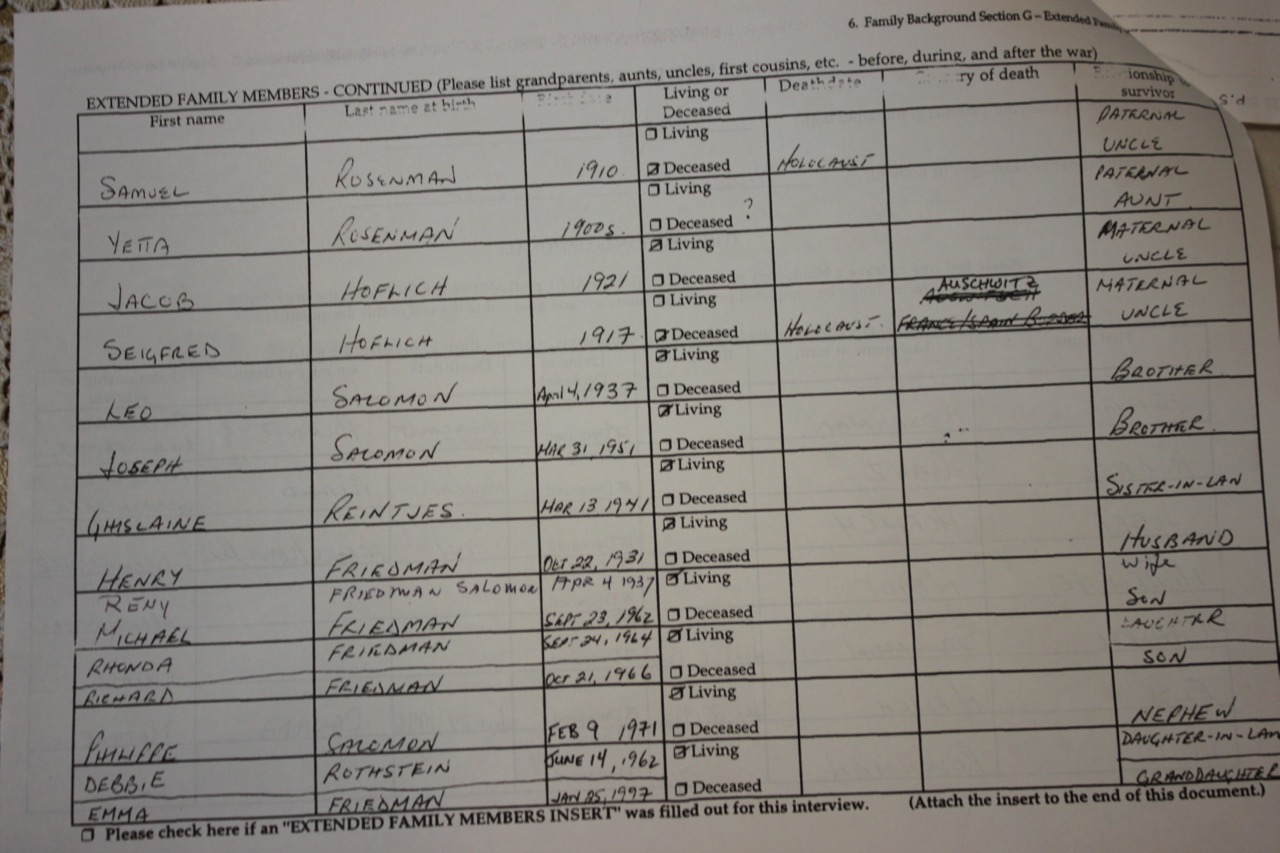 6. Family Background Section G – Extended Family
EXTENDED FAMILY MEMBERS - CONTINUED (Please list grandparents, aunts, uncles, first cousins, etc. - before, during, and after the war)
First name Last name at birth Birth date Living or Deceased Death date of death survivor
SAMUEL ROSENMAN 1910 ☐ Living ☑ Deceased HOLOCAUST PATERNAL UNCLE
YETTA ROSENMAN 1900s. ☐ Living ☐ Deceased ? PATERNAL AUNT
JACOB HOFLICH 1921 ☑ Living ☐ Deceased MATERNAL UNCLE
SEIGFRED HOFLICH 1917 ☐ Living ☑ Deceased HOLOCAUST. AUSCHWITZ FRANCE/SPAIN BORDER MATERNAL UNCLE
LEO SALOMON April 4, 1937 ☑ Living ☐ Deceased BROTHER
JOSEPH SALOMON MAR 31, 1951 ☑ Living ☐ Deceased BROTHER
GHISLAINE REINTJES. MAR 13 1941 ☑ Living ☐ Deceased SISTER-IN-LAW
HENRY FRIEDMAN OCT 22, 1931 ☑ Living ☐ Deceased HUSBAND
RENY FRIEDMAN SALOMON APR 4 1937 ☑ Living wife
MICHAEL FRIEDMAN SEPT 23, 1962 ☐ Deceased SON
RHONDA FRIEDMAN SEPT 24, 1964 ☑ Living DAUGHTER
RICHARD FRIEDMAN OCT 21, 1966 ☐ Deceased SON
PHILIPPE SALOMON FEB 9 1971 ☑ Living ☐ Deceased NEPHEW
DEBBIE ROTHSTEIN JUNE 14, 1962 ☑ Living DAUGHTER-IN-LAW
EMMA FRIEDMAN JAN 25, 1997 ☐ Deceased GRANDDAUGHTER
☐ Please check here if an "EXTENDED FAMILY MEMBERS INSERT" was filled out for this interview. (Attach the insert to the end of this document.)